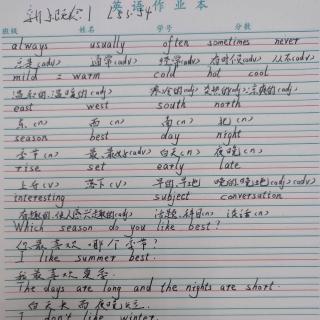 英语作业本
新概念1 L53-54
班级 姓名 学号 分数
always usually often sometimes never
总是(adv) 通常(adv) 经常(adv) 有时候(adv) 从不(adv)
mild = warm cold hot cool
温和的,温暖的(adj) 寒冷的(adj) 炎热的(adj) 凉爽的(adj)
east west south north
东(n) 西(n) 南(n) 北(n)
season best day night
季节(n) 最,最好(adv) 白天(n) 夜晚(n)
rise set early late
上升(v) 落下(v) 早的,早地 晚的,晚地(adj)(adv)
interesting subject conversation
有趣的,使人感兴趣的(adj) 话题,科目(n) 谈话(n)
Which season do you like best?
你最喜欢哪个季节?
I like summer best.
我最喜欢夏季.
The days are long and the nights are short.
白天长而夜晚短.
I don't like winter.